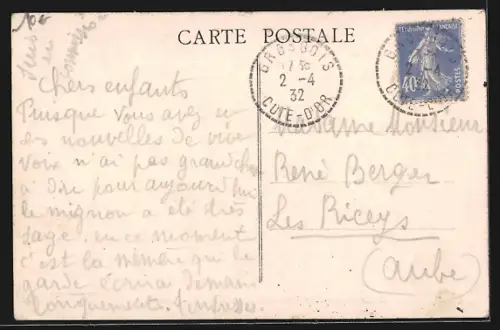 CARTE POSTALE
GROSBOIS
2-4
32
COTE-D'OR
40
POSTES
Chers enfants
Puisque vous avez eu
des nouvelles de vive
voix n'ai pas grand chose
à dire pour aujourd'hui
le mignon a été très
sage. en ce moment
c'est la mémère qui le
garde écrira demain
longuement.
Madame Monsieur
René Berger
Les Riceys
(Aube)